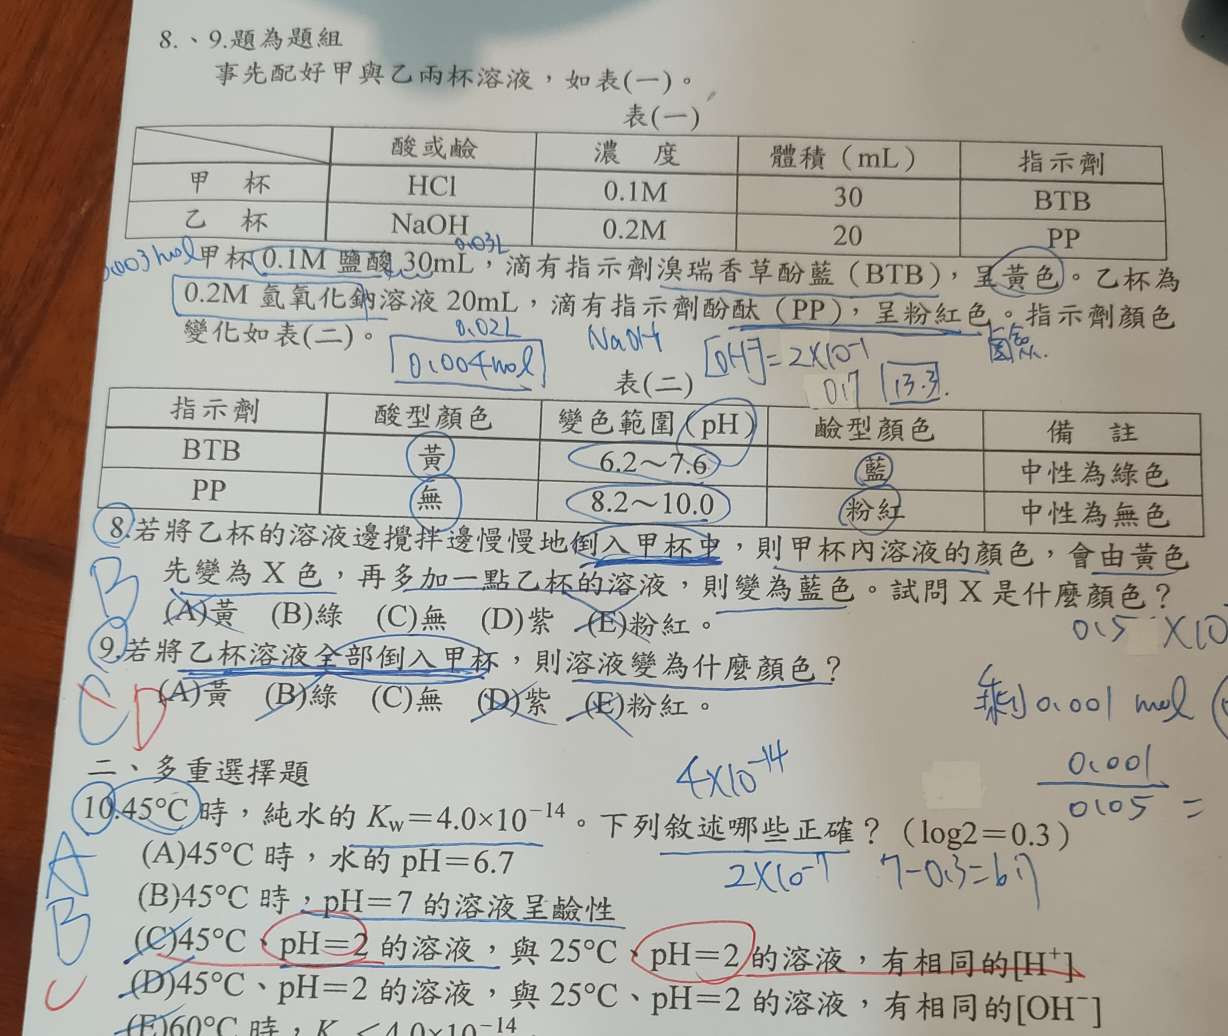 8.、9.題為題組
事先配好甲與乙兩杯溶液，如表(一)。
表(一)
酸或鹼 濃 度 體積（mL） 指示劑
甲 杯 HCl 0.1M 30 BTB
乙 杯 NaOH 0.2M 20 PP
0.03L
0.003mol 甲杯 0.1M 鹽酸 30mL，滴有指示劑溴瑞香草酚藍（BTB），呈黃色。乙杯為
0.2M 氫氧化鈉溶液 20mL，滴有指示劑酚酞（PP），呈粉紅色。指示劑顏色
變化如表(二)。 0.02L NaOH [OH⁻]=2×10⁻¹
0.004mol 表(二) 0.7 13.3
指示劑 酸型顏色 變色範圍(pH) 鹼型顏色 備 註
BTB 黃 6.2～7.6 藍 中性為綠色
PP 無 8.2～10.0 粉紅 中性為無色
8.若將乙杯的溶液邊攪拌邊慢慢地倒入甲杯中，則甲杯內溶液的顏色，會由黃色
B 先變為 X 色，再多加一點乙杯的溶液，則變為藍色。試問 X 是什麼顏色？
(A)黃 (B)綠 (C)無 (D)紫 (E)粉紅。
0.5 ×10
9.若將乙杯溶液全部倒入甲杯，則溶液變為什麼顏色？
C D (A)黃 (B)綠 (C)無 (D)紫 (E)粉紅。
剩0.001 mol
二、多重選擇題 4×10⁻¹⁴
0.001
0.05 =
10.45°C 時，純水的 Kw＝4.0×10⁻¹⁴。下列敘述哪些正確？（log2＝0.3）
A (A)45°C 時，水的 pH＝6.7
2×10⁻⁷ 7-0.3=6.7
B (B)45°C 時，pH＝7 的溶液呈鹼性
(C)45°C、pH＝2 的溶液，與 25°C、pH＝2 的溶液，有相同的[H⁺]
C (D)45°C、pH＝2 的溶液，與 25°C、pH＝2 的溶液，有相同的[OH⁻]
(E)60°C 時，K＜4.0×10⁻¹⁴